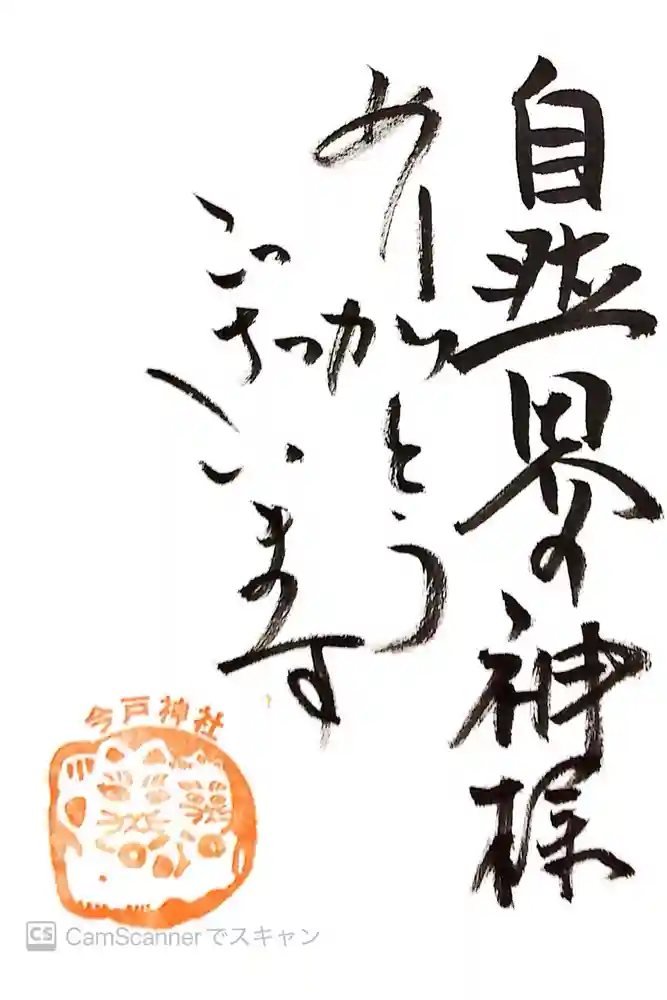 自然界の神様
ありがとう
ございます
今戸神社
CS CamScannerでスキャン